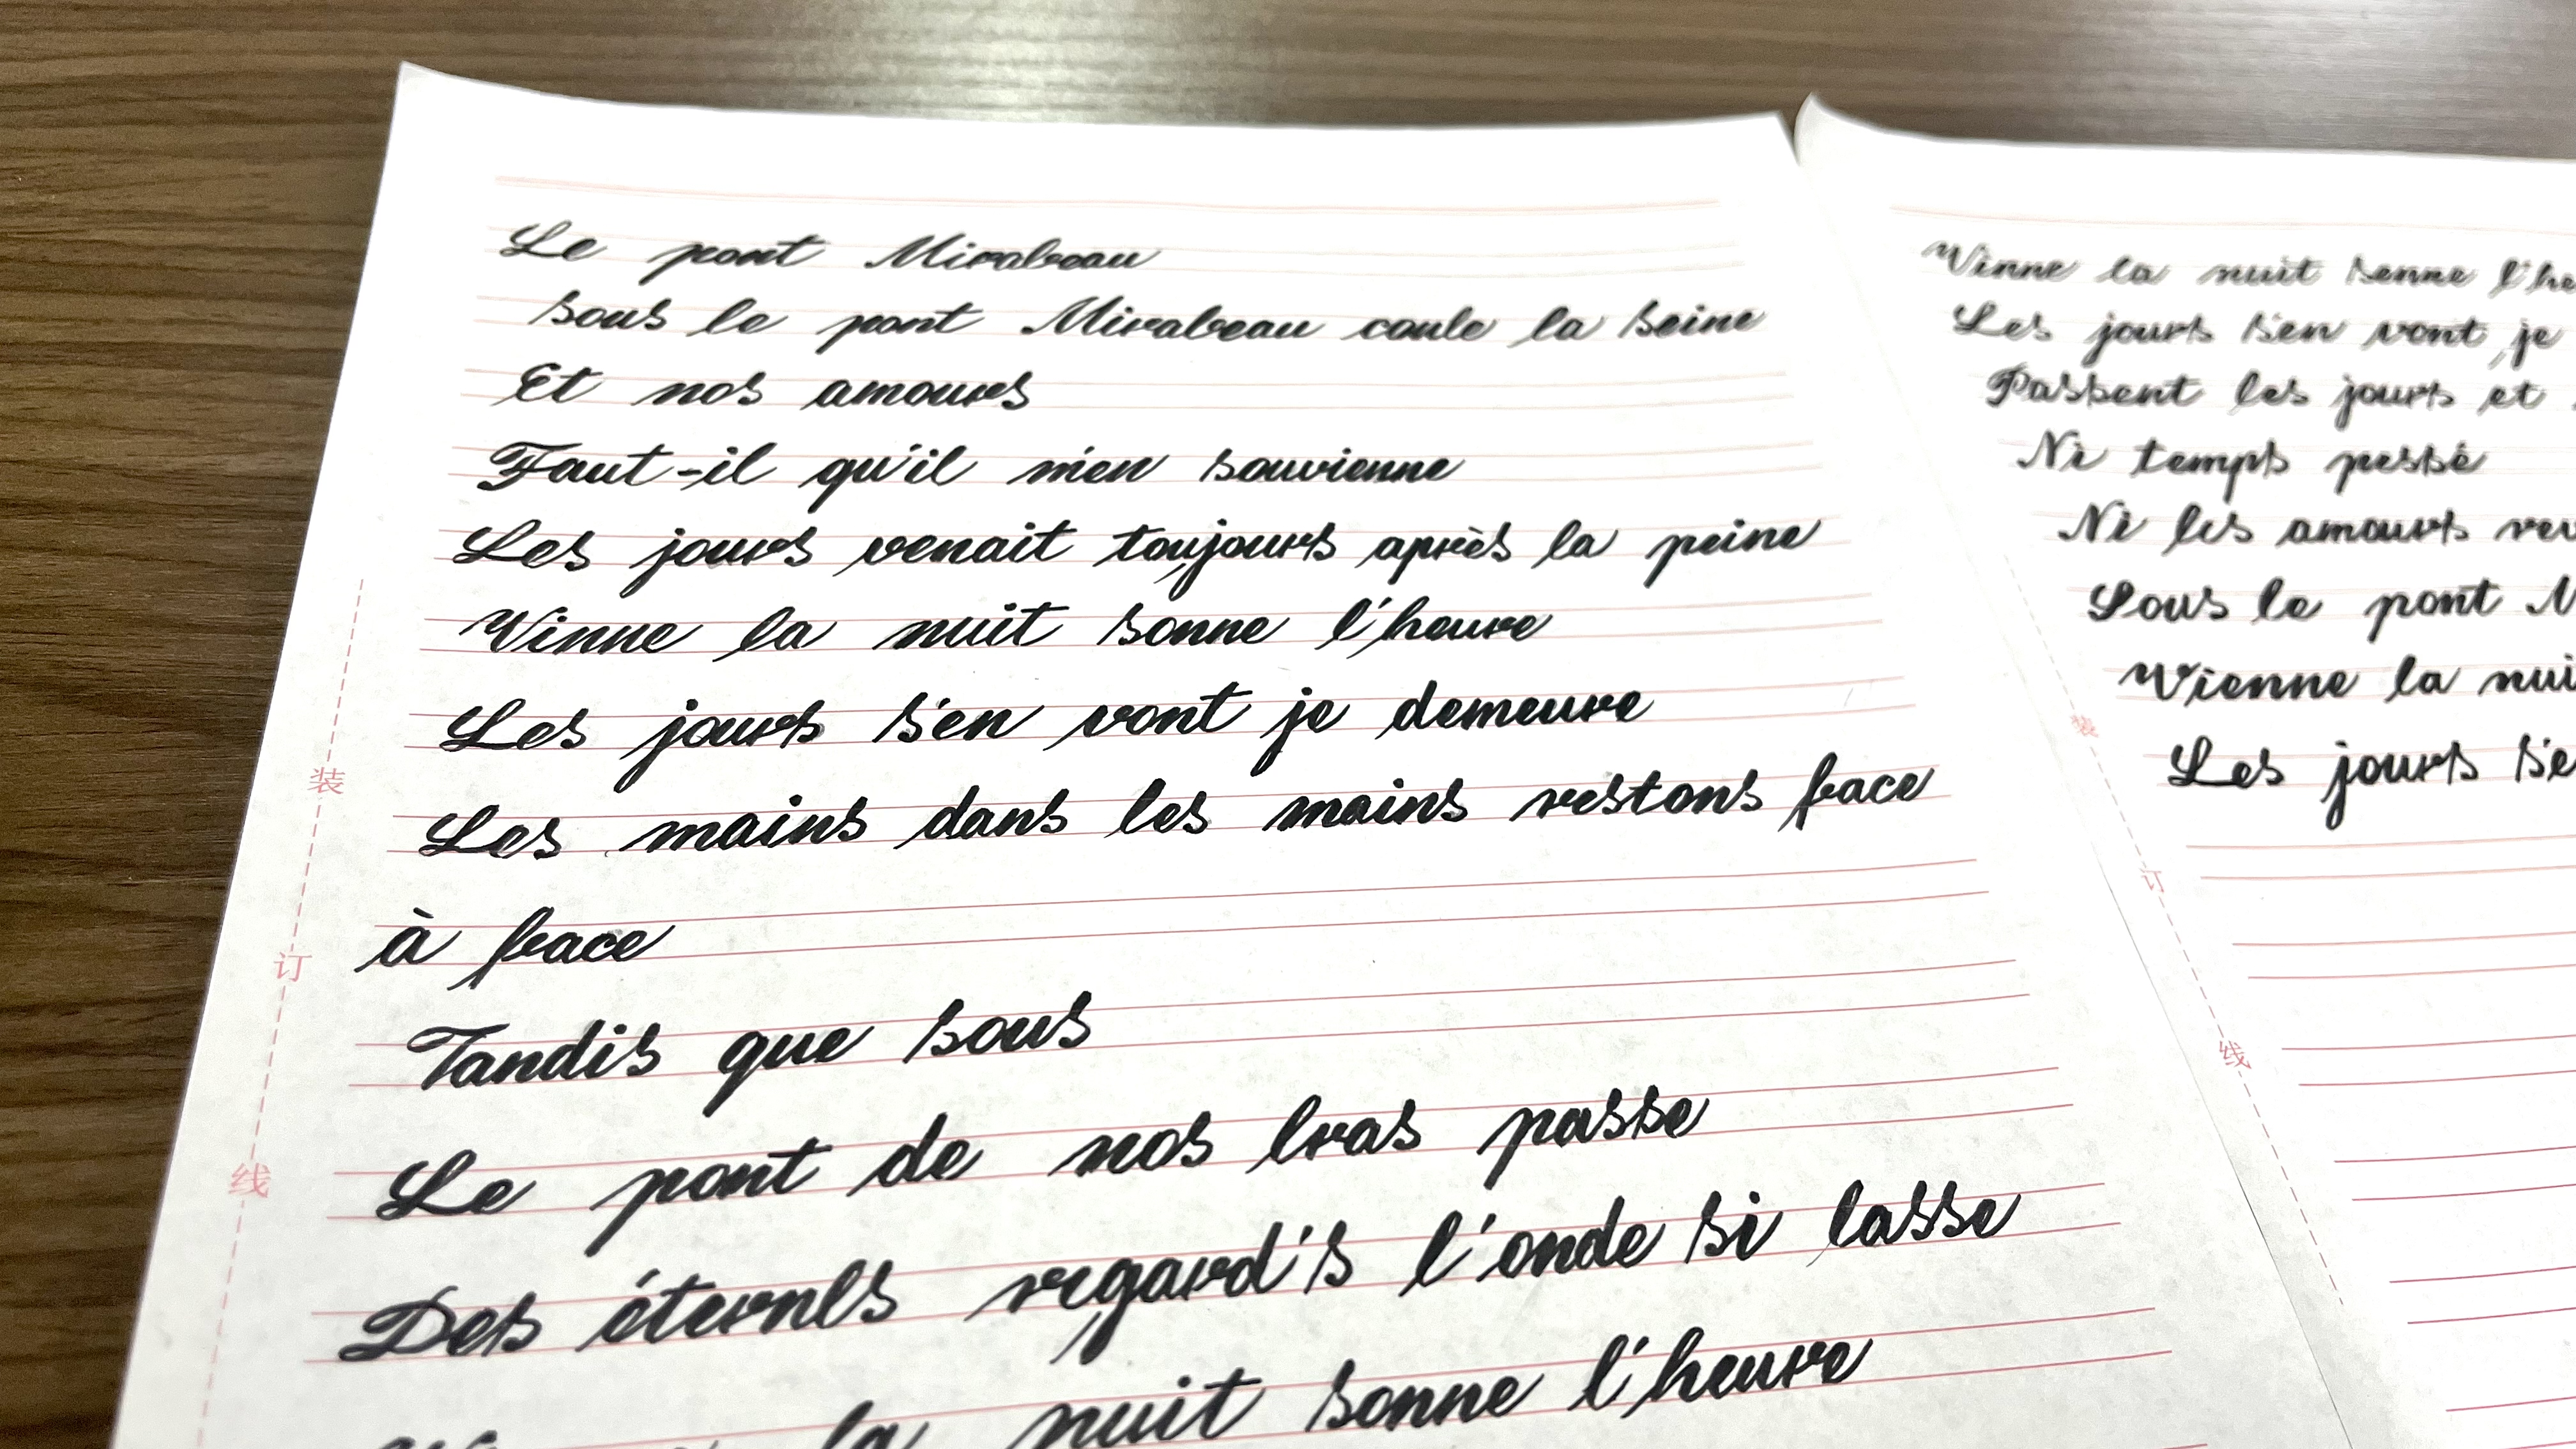 Le pont Mirabeau
sous le pont Mirabeau coule la seine
Et nos amours
Faut-il qu'il m'en souvienne
Les jours venait toujours après la peine
Vinne la nuit sonne l'heure
Les jours s'en vont je demeure
Les mains dans les mains restons face
à face
Tandis que sous
Le pont de nos bras passe
Des éternls regard's l'onde si lasse
la nuit sonne l'heure
装
订
线
Vinne la nuit senne l'he
Les jours s'en vont je
Passent les jours et
Ni temps pessé
Ni les amours rev
Sous le pont M
Vienne la nui
Les jours s'e
装
订
线